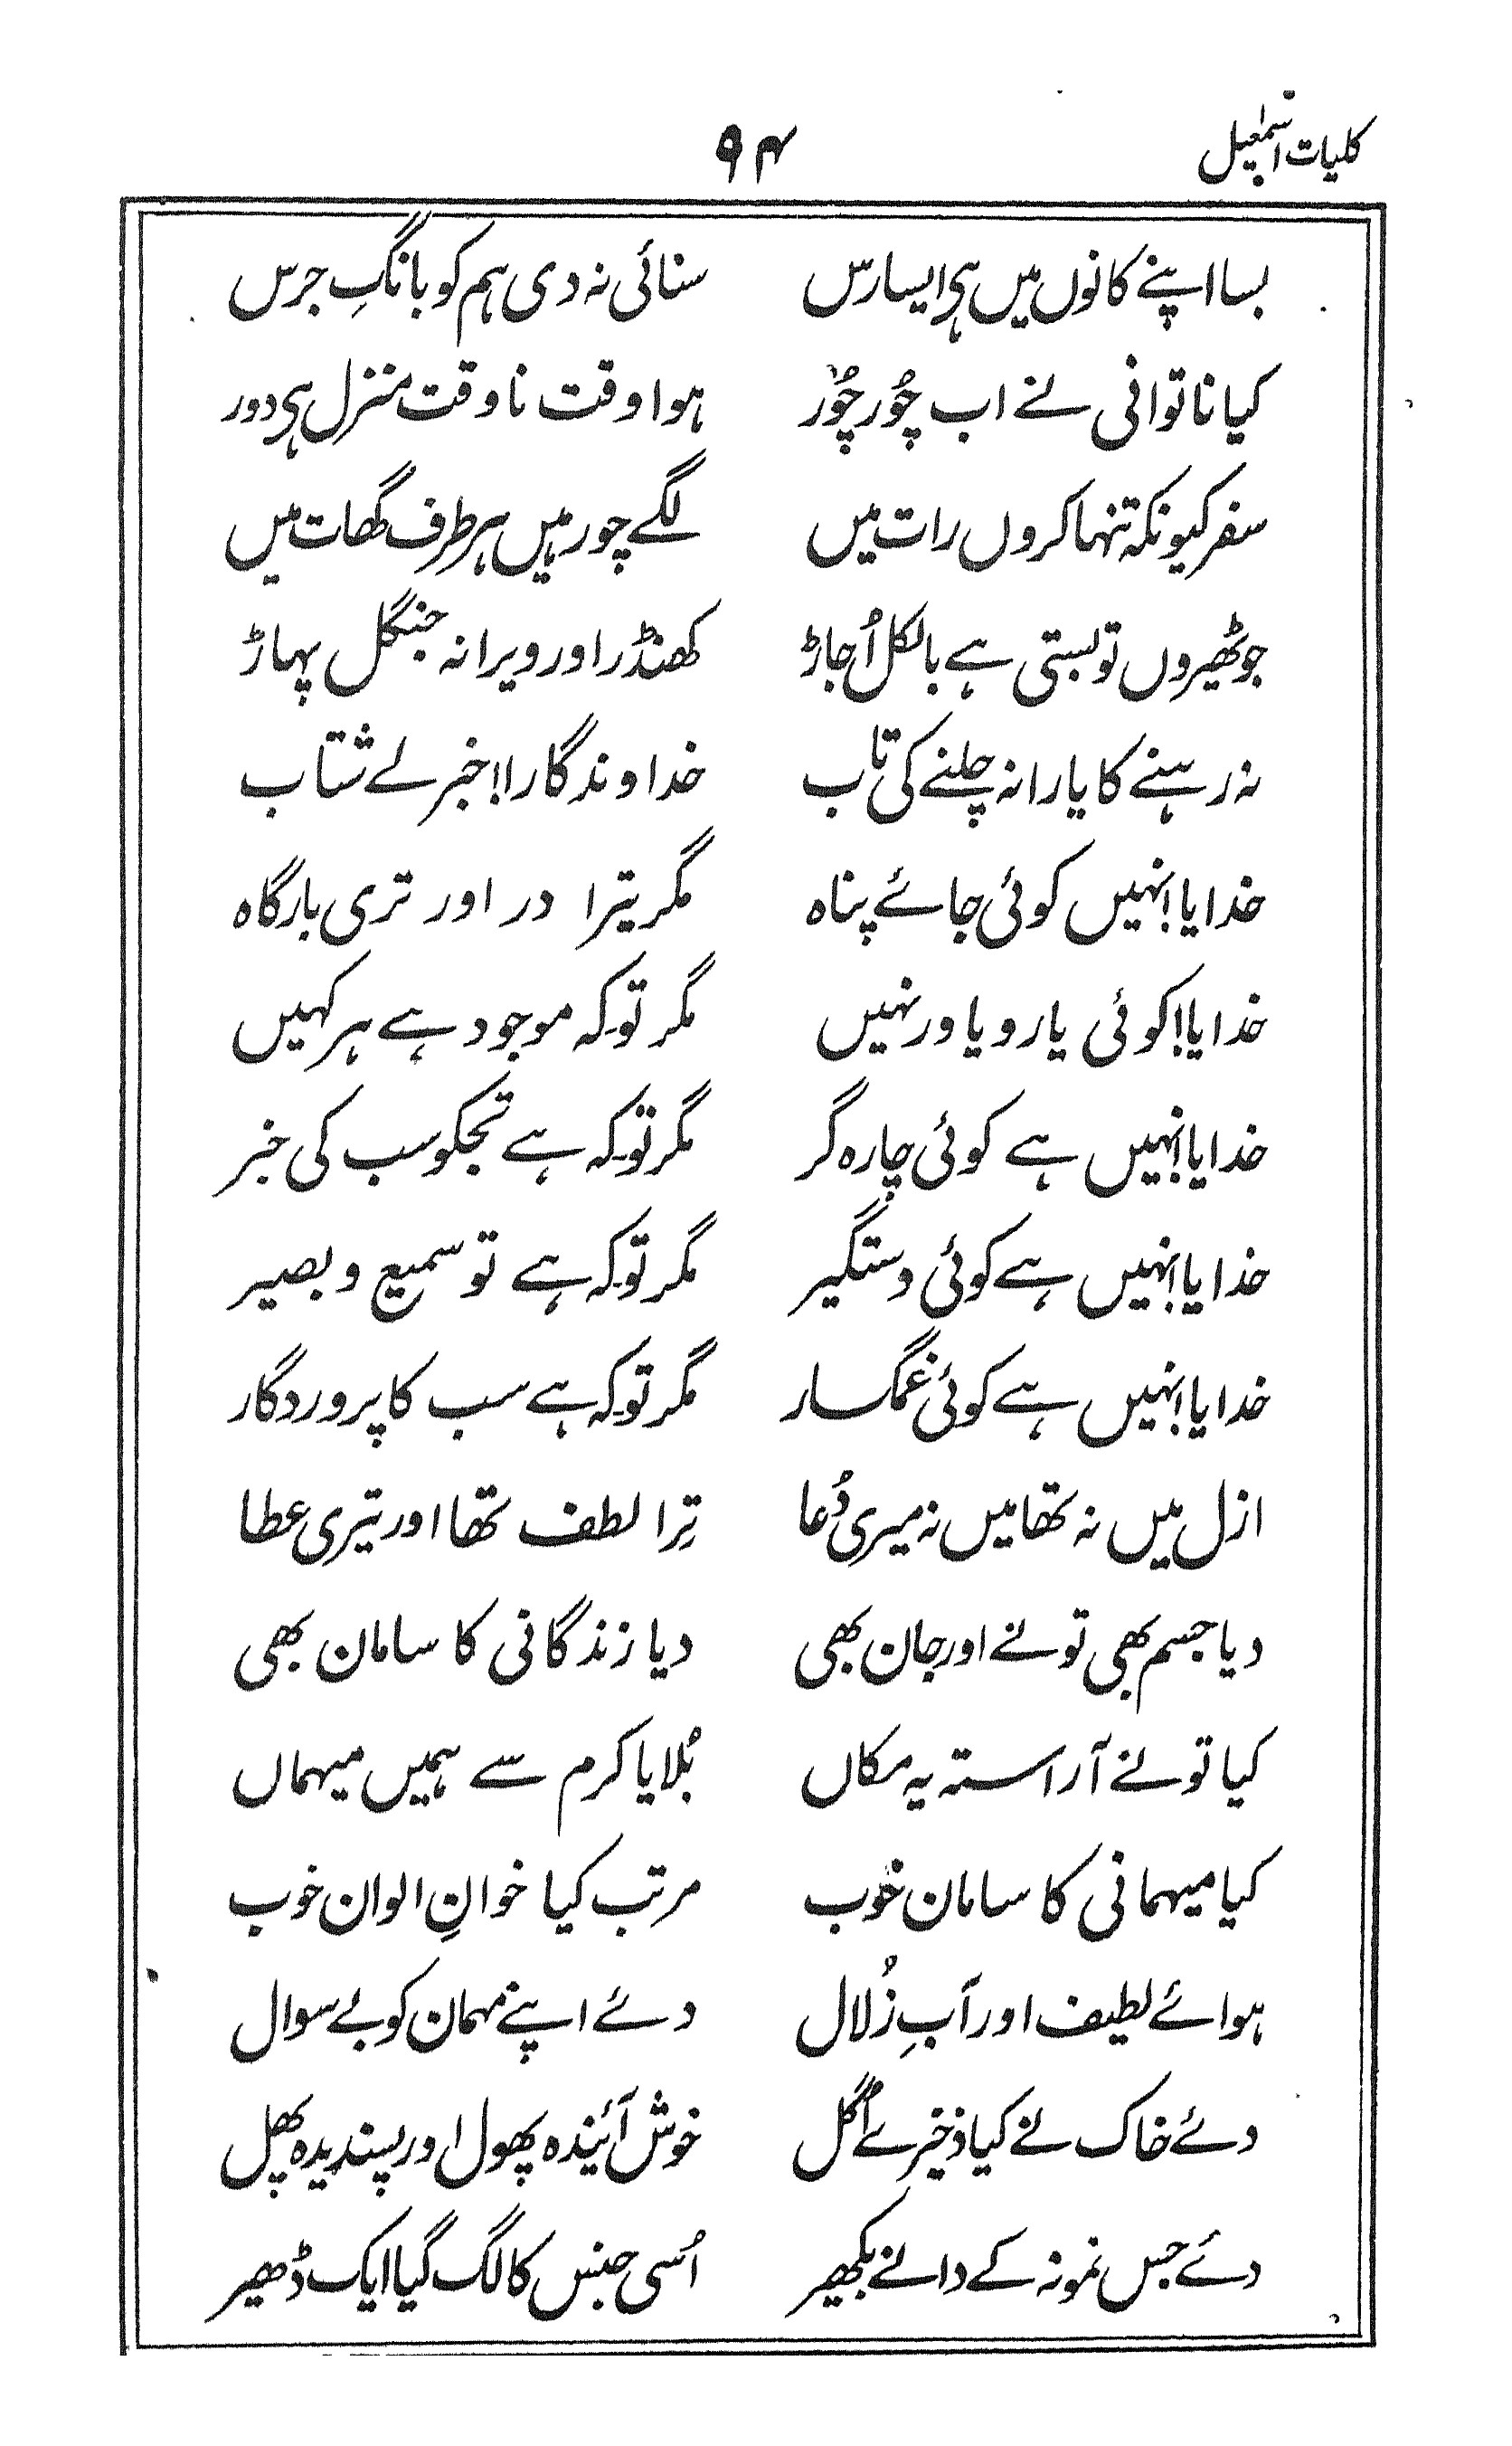 کلیات اسمٰعیل ۹۴
بسا اپنے کانوں میں ہی ایسا رس سنائی نہ دی ہم کو بانگِ جرس
کیا ناتوانی نے اب چُور چُور ہوا وقت ناوقت منزل ہی دور
سفر کیونکہ تنہا کروں رات میں لگے چور ہیں ہر طرف گھات میں
جو ٹھیروں تو بستی ہے بالکل اُجاڑ کھنڈر اور ویرانہ جنگل پہاڑ
نہ رہنے کا یارا نہ چلنے کی تاب خداوندگارا! خبر لے شتاب
خدایا! نہیں کوئی جائے پناہ مگر تیرا در اور تری بارگاہ
خدایا! کوئی یار و یاور نہیں مگر تو کہ موجود ہے ہر کہیں
خدایا! نہیں ہے کوئی چارہ گر مگر تو کہ ہے تجکو سب کی خبر
خدایا! نہیں ہے کوئی دستگیر مگر تو کہ ہے تو سمیع و بصیر
خدایا! نہیں ہے کوئی غمگسار مگر تو کہ ہے سب کا پروردگار
ازل میں نہ تھا میں نہ میری دُعا تِرا لطف تھا اور تیری عطا
دیا جسم بھی تو نے اور جان بھی دیا زندگانی کا سامان بھی
کیا تو نے آراستہ یہ مکاں بُلایا کرم سے ہمیں میہماں
کیا میہمانی کا سامان خوب مرتب کیا خوانِ الوان خوب
ہوائے لطیف اور آبِ زُلال دئے اپنے مہمان کو بے سوال
دئے خاک نے کیا ذخیرے اُگل خوش آئندہ پھول اور پسندیدہ پھل
دئے جس نمونہ کے دانے بکھیر اُسی جنس کا لگ گیا ایک ڈھیر